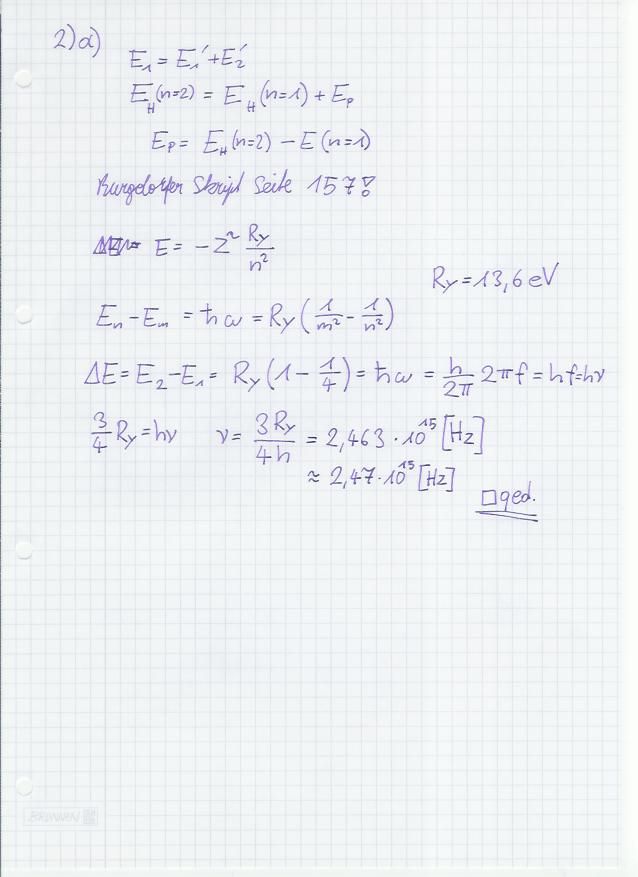 2)a)
E₁ = E₁′ + E₂′
E_H(n=2) = E_H(n=1) + E_P
E_P = E_H(n=2) − E(n=1)
Burgdorfer Skript Seite 157!
E = −Z² Ry/n²
Ry = 13,6 eV
Eₙ − Eₘ = ħω = Ry(1/m² − 1/n²)
ΔE = E₂ − E₁ = Ry(1 − 1/4) = ħω = h/2π 2πf = hf = hν
3/4 Ry = hν   ν = 3Ry/4h = 2,463 · 10¹⁵ [Hz]
≈ 2,47 · 10¹⁵ [Hz]
□ qed.
BRUNNEN